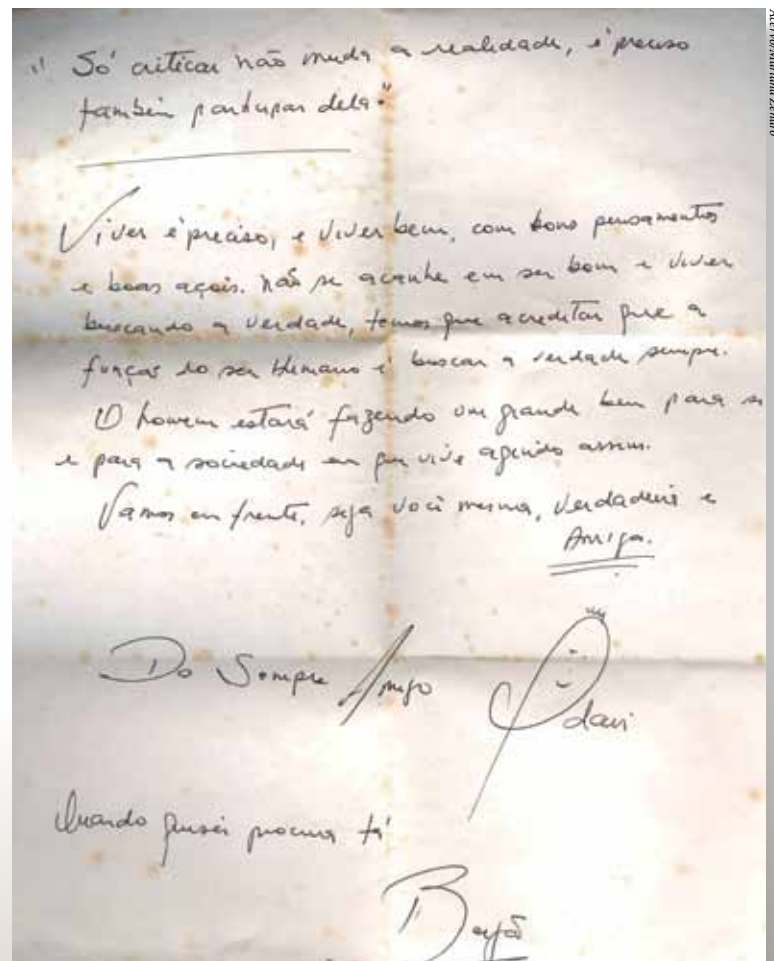 " Só criticar não muda a realidade, é preciso
também participar dela."
Viver é preciso, e viver bem, com bons pensamentos
e boas ações. Não se acanhe em ser bom e viver
buscando a verdade, temos que acreditar que a
função do ser Humano é buscar a verdade sempre.
O homem estará fazendo um grande bem para si
e para a sociedade em que vive agindo assim.
Vamos em frente, seja você mesma, verdadeira e
Amiga.
Do Sempre Amigo
Odair
Quando quiser procura tá
Beijão